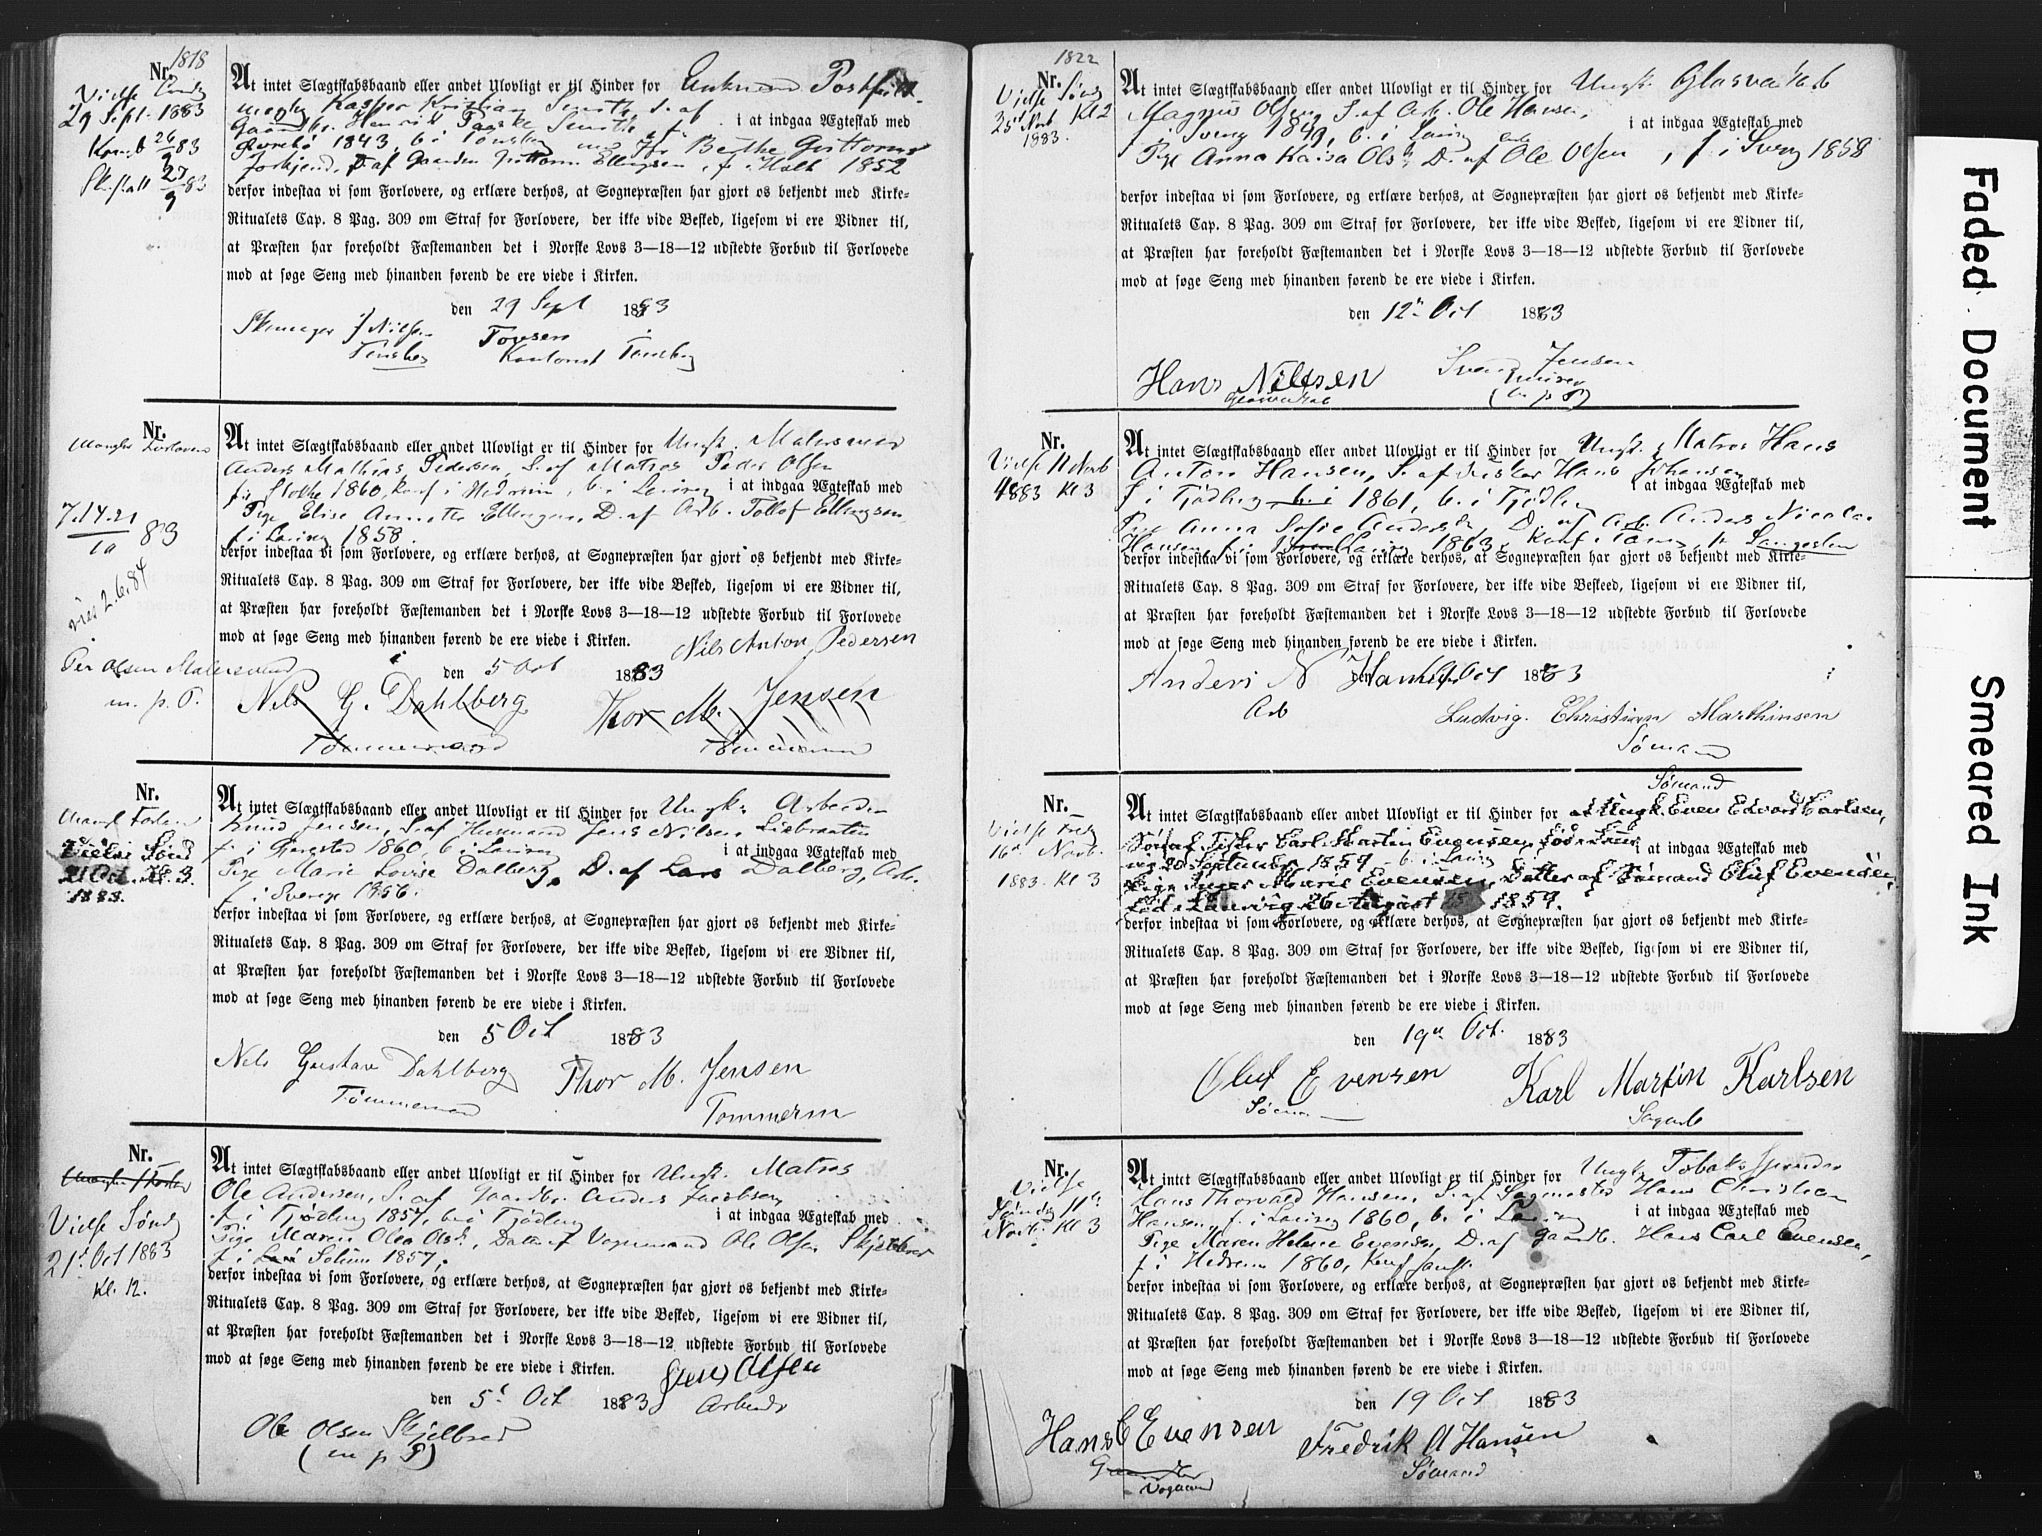 1818
Nr.
Vielse
29 Sept. 1883
26
9 83
27
9 83
At intet Slægtskabsbaand eller andet Ulovligt er til Hinder for Enkemand
Kasper Kristian S. af
i at indgaa Ægteskab med
1843, b. i Tønsberg Berthe
D. af Ellingsen, f. i 1852
derfor indestaa vi som Forlovere, og erklære derhos, at Sognepræsten har gjort os bekjendt med Kirke-
Ritualets Cap. 8 Pag. 309 om Straf for Forlovere, der ikke vide Besked, ligesom vi ere Vidner til,
at Præsten har foreholdt Fæstemanden det i Norske Lovs 3—18—12 udstedte Forbud til Forlovede
mod at søge Seng med hinanden førend de ere viede i Kirken.
den 29 Sept 1883
J Nilsen
Nr.
Mangler Forlovere
7.14.21
10 83
viet 2.6.84
At intet Slægtskabsbaand eller andet Ulovligt er til Hinder for Ungk. Matrosmand
Anders Mathias Pedersen, S. af Matros Peder Olsen
f. i Stokke 1860, konf. i Hedrum, b. i Laurvig i at indgaa Ægteskab med
Pige Elise Annette Ellingsen, D. af Arb. Tollef Ellingsen,
f. i Laurvig 1858.
derfor indestaa vi som Forlovere, og erklære derhos, at Sognepræsten har gjort os bekjendt med Kirke-
Ritualets Cap. 8 Pag. 309 om Straf for Forlovere, der ikke vide Besked, ligesom vi ere Vidner til,
at Præsten har foreholdt Fæstemanden det i Norske Lovs 3—18—12 udstedte Forbud til Forlovede
mod at søge Seng med hinanden førend de ere viede i Kirken.
Nils Anton Pedersen
den 5 Oct 1883
Per Olsen
m. p. P.
Nils G. Dahlberg Thor M. Jensen
Tømmermand Tømmermand
Nr.
Mangl. Forlov
Vielse Sønd
21 Oct. Kl. 3.
1883.
At intet Slægtskabsbaand eller andet Ulovligt er til Hinder for Ungk. Arbeider
Knud Jensen, S. af Husmand Jens Nilsen
f. i 1860, b. i Laurvig i at indgaa Ægteskab med
Pige Marie Lovise Dalberg, D. af Lars Dalberg, Arb.
f. i Sverige 1856.
derfor indestaa vi som Forlovere, og erklære derhos, at Sognepræsten har gjort os bekjendt med Kirke-
Ritualets Cap. 8 Pag. 309 om Straf for Forlovere, der ikke vide Besked, ligesom vi ere Vidner til,
at Præsten har foreholdt Fæstemanden det i Norske Lovs 3—18—12 udstedte Forbud til Forlovede
mod at søge Seng med hinanden førend de ere viede i Kirken.
den 5 Oct 1883
Nils Gustav Dahlberg Thor M. Jensen
Tømmermand Tommerm
Nr.
Vielse Sønd
21de Oct 1883
Kl. 12.
At intet Slægtskabsbaand eller andet Ulovligt er til Hinder for Ungk. Matros
Ole Andersen, S. af Gaardbr. Anders Jacobsen,
f. i Tjødling 1857, b. i Tjødling i at indgaa Ægteskab med
Pige Maren Olea Olsd., Datter af Vognmand Ole Olsen Skjelbred
f. i Solum 1857.
derfor indestaa vi som Forlovere, og erklære derhos, at Sognepræsten har gjort os bekjendt med Kirke-
Ritualets Cap. 8 Pag. 309 om Straf for Forlovere, der ikke vide Besked, ligesom vi ere Vidner til,
at Præsten har foreholdt Fæstemanden det i Norske Lovs 3—18—12 udstedte Forbud til Forlovede
mod at søge Seng med hinanden førend de ere viede i Kirken.
Olsen
den 5t Oct 1883
Arbeider
Ole Olsen Skjelbred
(m p P)
1822
Nr.
Vielse Sønd
25de Novb Kl 2
1883.
At intet Slægtskabsbaand eller andet Ulovligt er til Hinder for Ungk. Glasværksarb
Magnus Olsen, S. af Arb. Ole Hansen,
i at indgaa Ægteskab med
Pige Anna Kaisa Olsd, D. af Ole Olsen, f. i Sverig 1858
derfor indestaa vi som Forlovere, og erklære derhos, at Sognepræsten har gjort os bekjendt med Kirke-
Ritualets Cap. 8 Pag. 309 om Straf for Forlovere, der ikke vide Besked, ligesom vi ere Vidner til,
at Præsten har foreholdt Fæstemanden det i Norske Lovs 3—18—12 udstedte Forbud til Forlovede
mod at søge Seng med hinanden førend de ere viede i Kirken.
den 12te Oct 1883
Hans Nilssen Svend Jensen
(m p P)
Nr.
Vielse 11 Novb
1883 Kl 3
At intet Slægtskabsbaand eller andet Ulovligt er til Hinder for Ungk. Matros Hans
Anton Hansen, S. af Fisker Hans Johansen
f. i Tjødling b. i 1861, b. i Tjødling i at indgaa Ægteskab med
Pige Anna Sofie D. af Arb. Anders Nicolai
Hansen f. i Laurvig 1863, Konf. i Langesten
derfor indestaa vi som Forlovere, og erklære derhos, at Sognepræsten har gjort os bekjendt med Kirke-
Ritualets Cap. 8 Pag. 309 om Straf for Forlovere, der ikke vide Beskeed, ligesom vi ere Vidner til,
at Præsten har foreholdt Fæstemanden det i Norske Lovs 3—18—12 udstedte Forbud til Forlovede
mod at søge Seng med hinanden førend de ere viede i Kirken.
Anders N Hansen den Oct 1883
Arb Ludvig Christian Marthinsen
Sømand
Nr.
Vielse Fred
16de Novb.
1883. Kl 3
Sømand
At intet Slægtskabsbaand eller andet Ulovligt er til Hinder for Ungk. Even Edvard Carlsen,
Søn af Fisker Carl Martin Evensen, i at indgaa Ægteskab med
20 September 1859 b. i Laurvig
Pige Inger Marie Evensen, Datter af Sømand Oluf Evensen,
Laurvig 26 August 1859.
derfor indestaa vi som Forlovere, og erklære derhos, at Sognepræsten har gjort os bekjendt med Kirke-
Ritualets Cap. 8 Pag. 309 om Straf for Forlovere, der ikke vide Besked, ligesom vi ere Vidner til,
at Præsten har foreholdt Fæstemanden det i Norske Lovs 3—18—12 udstedte Forbud til Forlovede
mod at søge Seng med hinanden førend de ere viede i Kirken.
den 19de Oct. 1883
Oluf Evensen Karl Martin Karlsen
Sømand Sagarb
Nr.
Vielse
Søndag 11te
Novb. Kl 3
At intet Slægtskabsbaand eller andet Ulovligt er til Hinder for Ungk. Tobaksspinder
Hans Thorvald Hansen, S. af Sagmester Hans Christian
Hansen, f. i Laurvig 1860, b. i Laurvig i at indgaa Ægteskab med
Pige Maren Helene Evensen, D. af Gaardb. Hans Carl Evensen,
f. i Hedrum 1860, Konf
derfor indestaa vi som Forlovere, og erklære derhos, at Sognepræsten har gjort os bekjendt med Kirke-
Ritualets Cap. 8 Pag. 309 om Straf for Forlovere, der ikke vide Besked, ligesom vi ere Vidner til,
at Præsten har foreholdt Fæstemanden det i Norske Lovs 3—18—12 udstedte Forbud til Forlovede
mod at søge Seng med hinanden førend de ere viede i Kirken.
den 19 Oct 1883
Hans C Evensen Fredrik A Hansen
Sømand
Vognmand
Faded Document
Smeared Ink